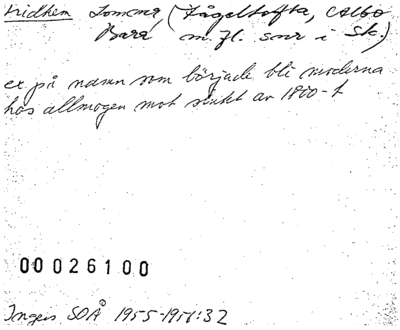 Fridhem Lomma, (Fågeltofta, Albo
Bara m.fl. snr i Sk.)
ex på namn som började bli moderna
hos allmogen mot slutet av 1800-t
00026100
Ingers SOÅ 1955-1956:32